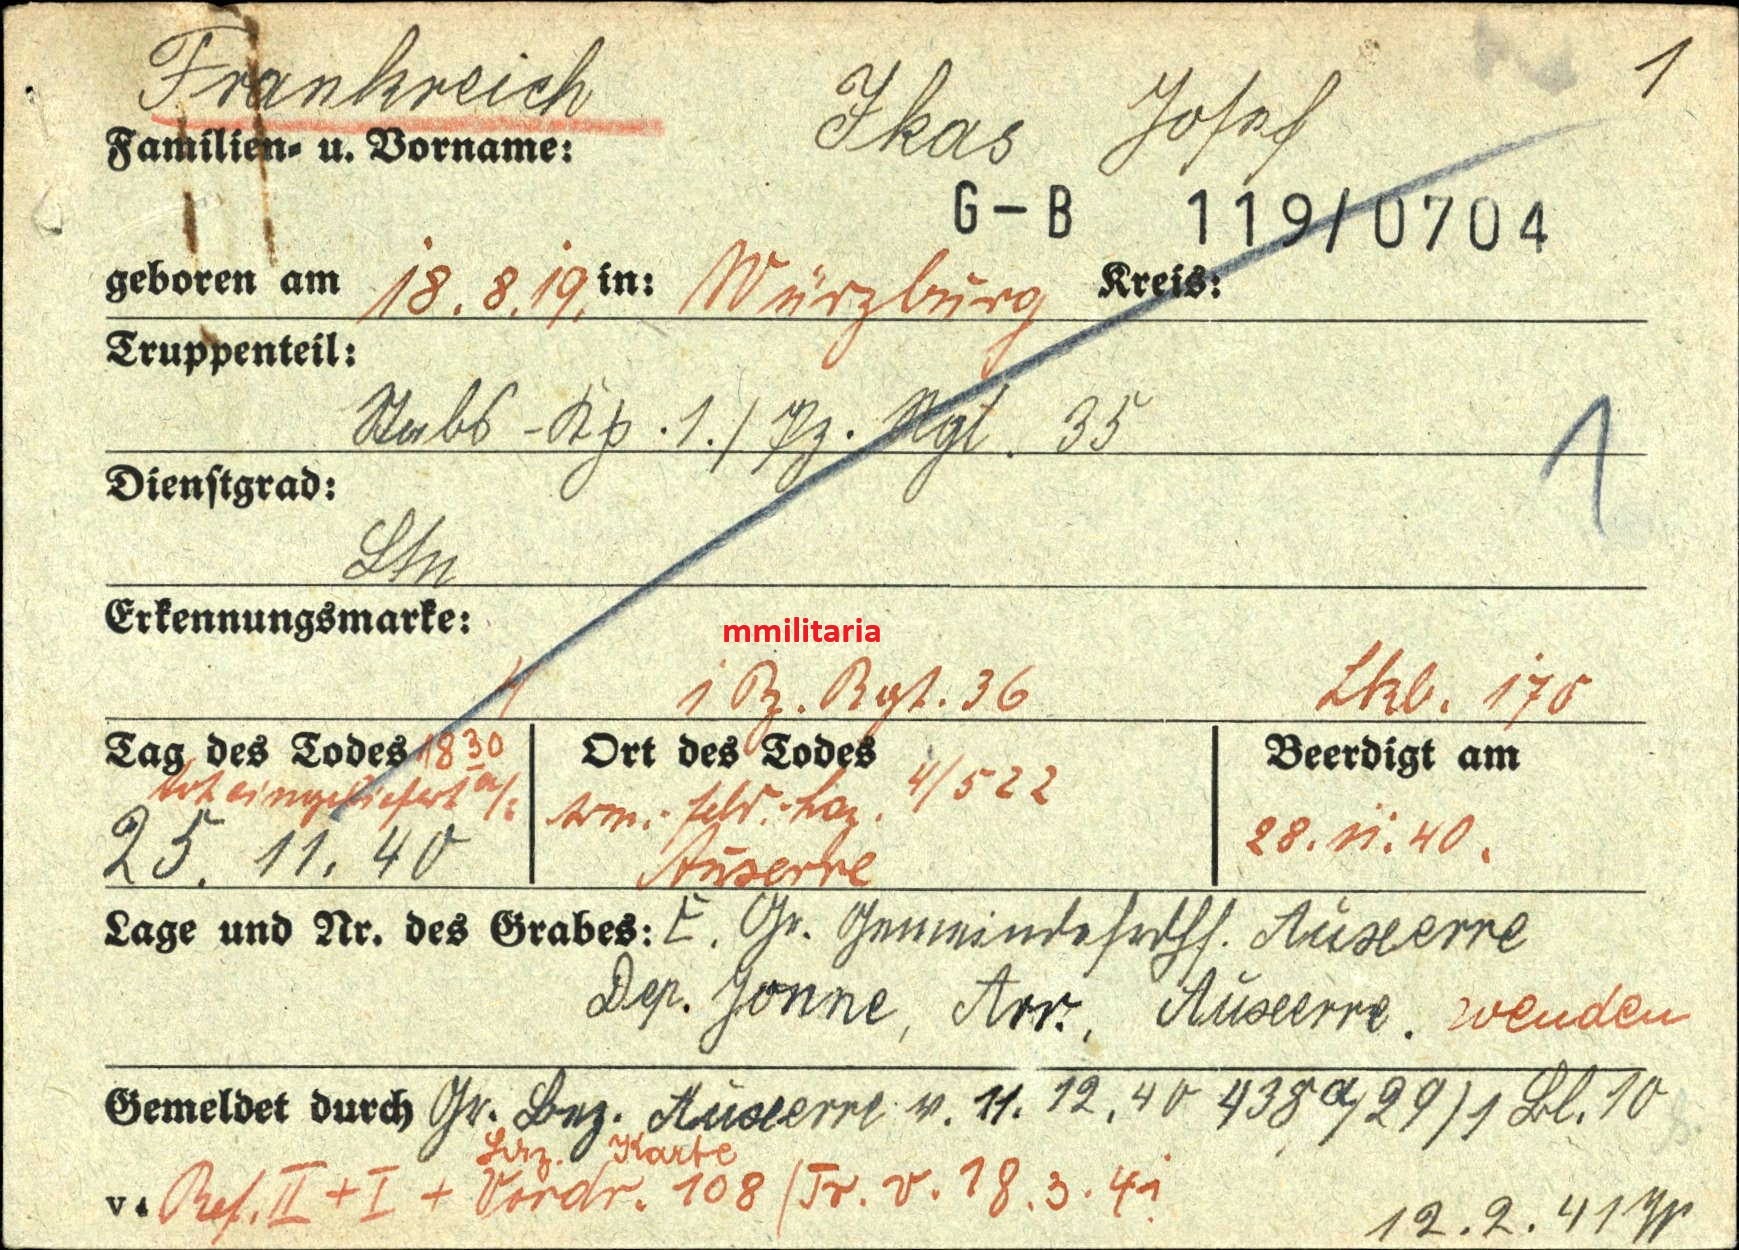 Frankreich Ikas Josef 1
Familien- u. Vorname:
G-B 119/0704
geboren am 18.8.19. in: Würzburg Kreis:
Truppenteil:
Stabs-Kp. 1./Pz. Rgt. 35
1
Dienstgrad:
Ltn
Erkennungsmarke:
mmilitaria
1 Pz. Rgt. 36
Tag des Todes 18 30 Ort des Todes Beerdigt am
tot eingeliefert
Arm.-Feld.-Laz. 4/522
25. 11. 40 Auxerre 28.11.40.
Lage und Nr. des Grabes: E. Gr. Gemeindefrdhf. Auxerre
Dep. Yonne, Arr., Auxerre. wenden
Gemeldet durch Gr. Auxerre v. 11. 12. 40 438a/29)1 Bl. 10
Karte
Ref. II + I + Vordr. 108 /Tr. v. 18.3.41
12.2.41